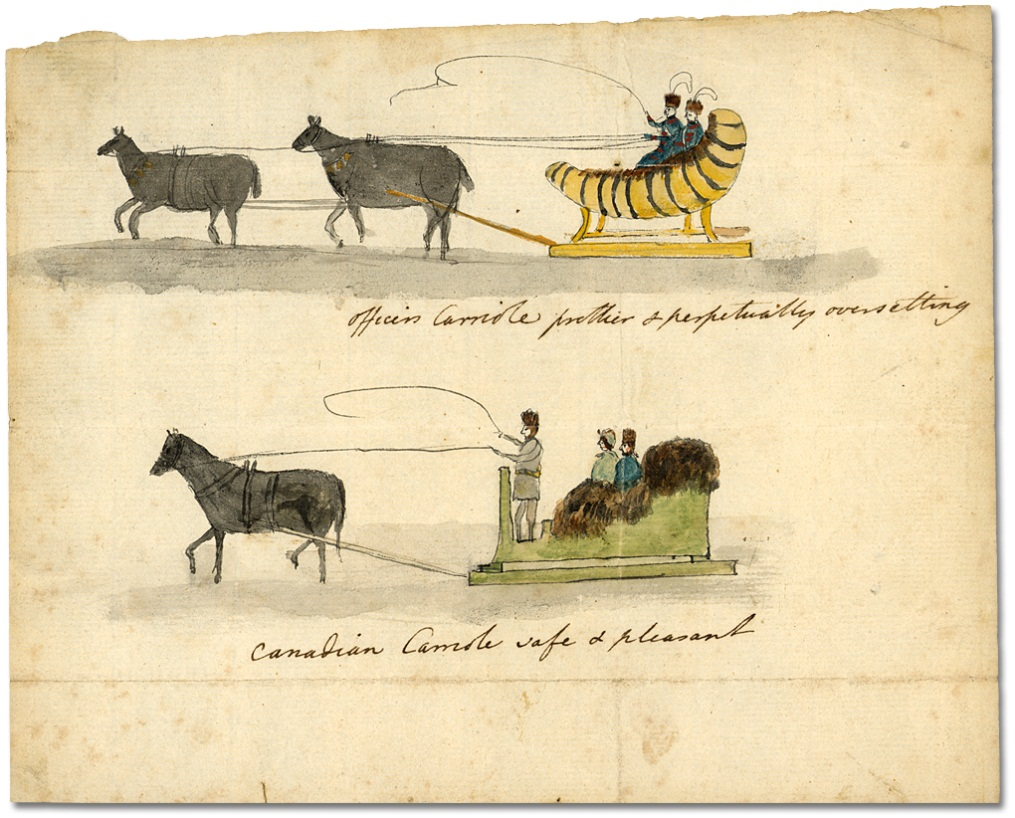 officers Carriole prettier & perpetually oversetting
Canadian Carriole safe & pleasant